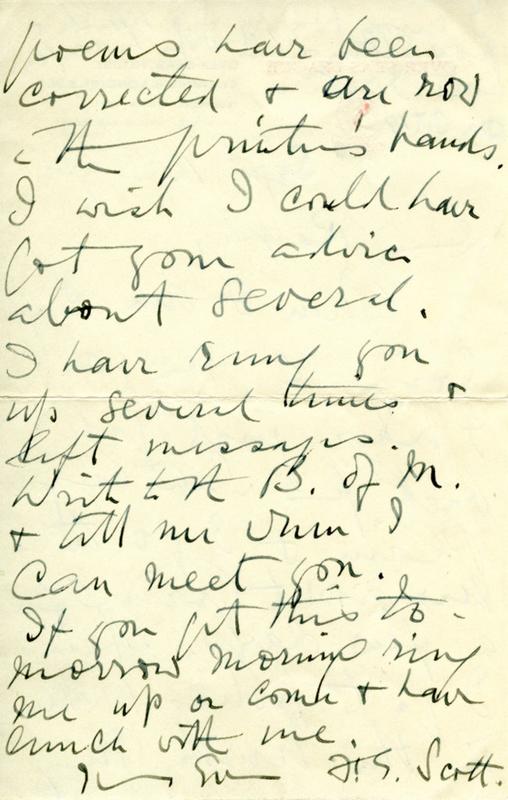 poems have been
corrected & are now
in the printer's hands.
I wish I could have
got your advice
about several.
I have rung you
up several times &
left messages.
Write to the B. of M.
& tell me when I
can meet you.
If you get this to-
morrow morning ring
me up or come & have
lunch with me.
Yours Ever F. G. Scott.